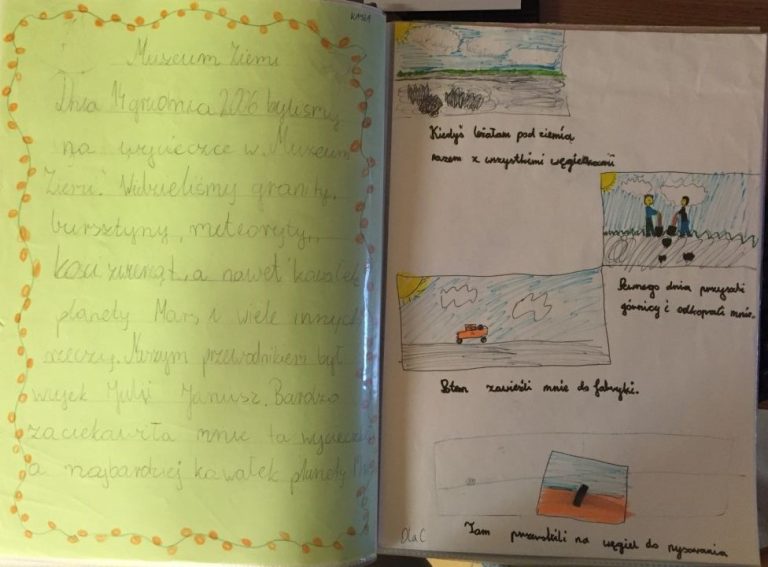 KASIA
Muzeum Ziemi
Dnia 14 grudnia 2006 byliśmy
na wycieczce w Muzeum
Ziemi. Widzieliśmy granity,
bursztyny, meteoryty,
kości zwierząt, a nawet kawałek
planety Mars, i wiele innych
rzeczy. Naszym przewodnikiem był
wujek Julki Janusz. Bardzo
zaciekawiła mnie ta wycieczka
a najbardziej kawałek planety Mars
Kiedyś leżałam pod ziemią
razem z wszystkimi węgielkami
Pewnego dnia przyszli
górnicy i odkopali mnie.
Potem zawieźli mnie do fabryki.
Tam przerobili na węgiel do rysowania